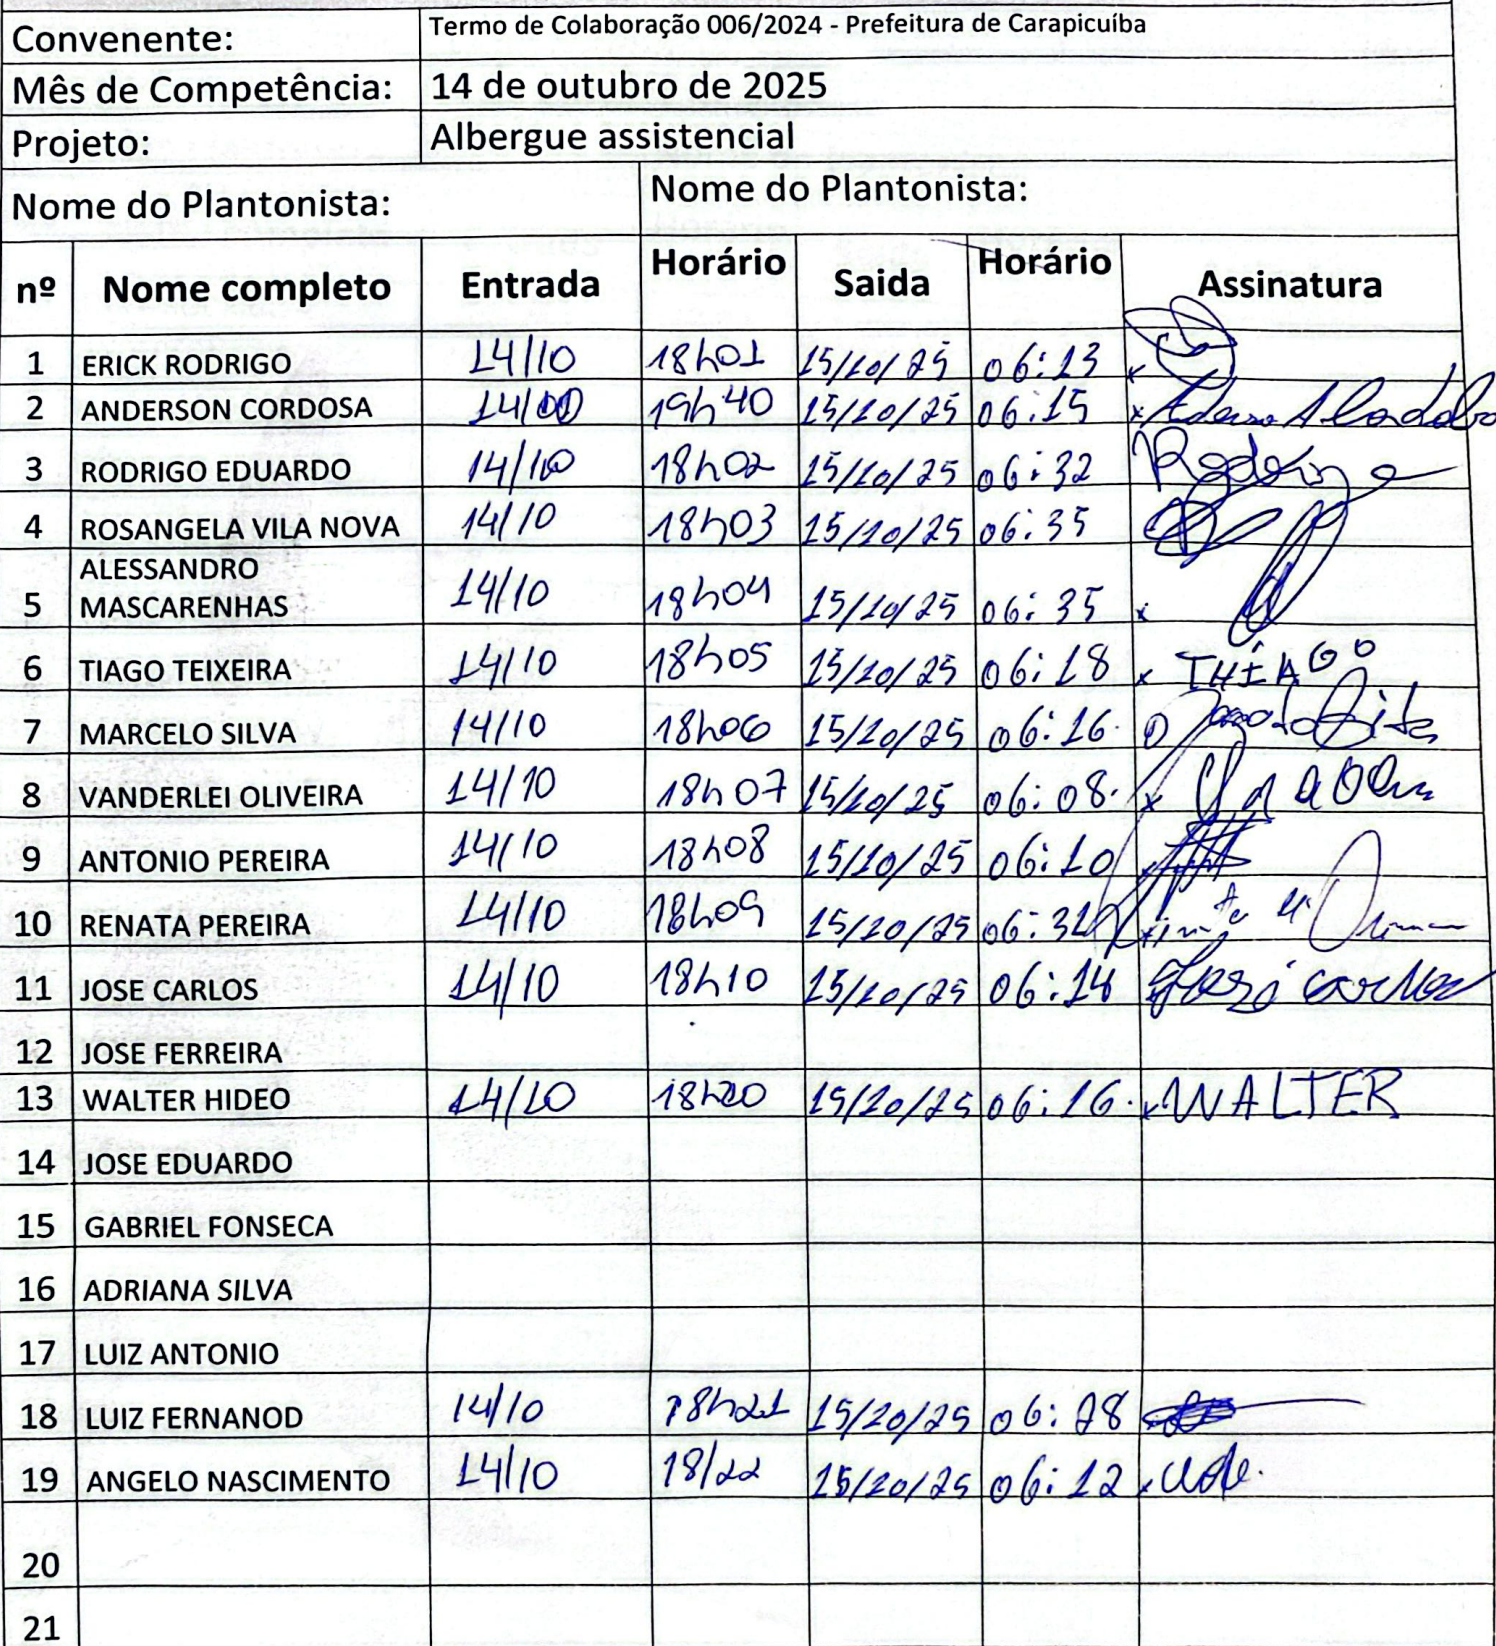 Convenente: Termo de Colaboração 006/2024 - Prefeitura de Carapicuíba
Mês de Competência: 14 de outubro de 2025
Projeto: Albergue assistencial
Nome do Plantonista: Nome do Plantonista:
nº Nome completo Entrada Horário Saida Horário Assinatura
1 ERICK RODRIGO 14/10 18h01 15/10/25 06:13
2 ANDERSON CORDOSA 14/10 19h40 15/10/25 06:15
3 RODRIGO EDUARDO 14/10 18h02 15/10/25 06:32 Rodrigo
4 ROSANGELA VILA NOVA 14/10 18h03 15/10/25 06:35
ALESSANDRO
5 MASCARENHAS 14/10 18h04 15/10/25 06:35 x
6 TIAGO TEIXEIRA 14/10 18h05 15/10/25 06:18 x THIAGO
7 MARCELO SILVA 14/10 18h06 15/10/25 06:16
8 VANDERLEI OLIVEIRA 14/10 18h07 15/10/25 06:08 x
9 ANTONIO PEREIRA 14/10 18h08 15/10/25 06:10
10 RENATA PEREIRA 14/10 18h09 15/10/25
11 JOSE CARLOS 14/10 18h10 15/10/25 06:14 José Carlos
12 JOSE FERREIRA
13 WALTER HIDEO 14/10 18h20 15/10/25 06:16 x WALTER
14 JOSE EDUARDO
15 GABRIEL FONSECA
16 ADRIANA SILVA
17 LUIZ ANTONIO
18 LUIZ FERNANOD 14/10 18h21 15/10/25 06:28
19 ANGELO NASCIMENTO 14/10 18/22 15/10/25 06:12 x
20
21